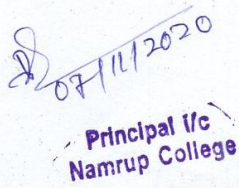 07/11/2020
Principal i/c
Namrup College